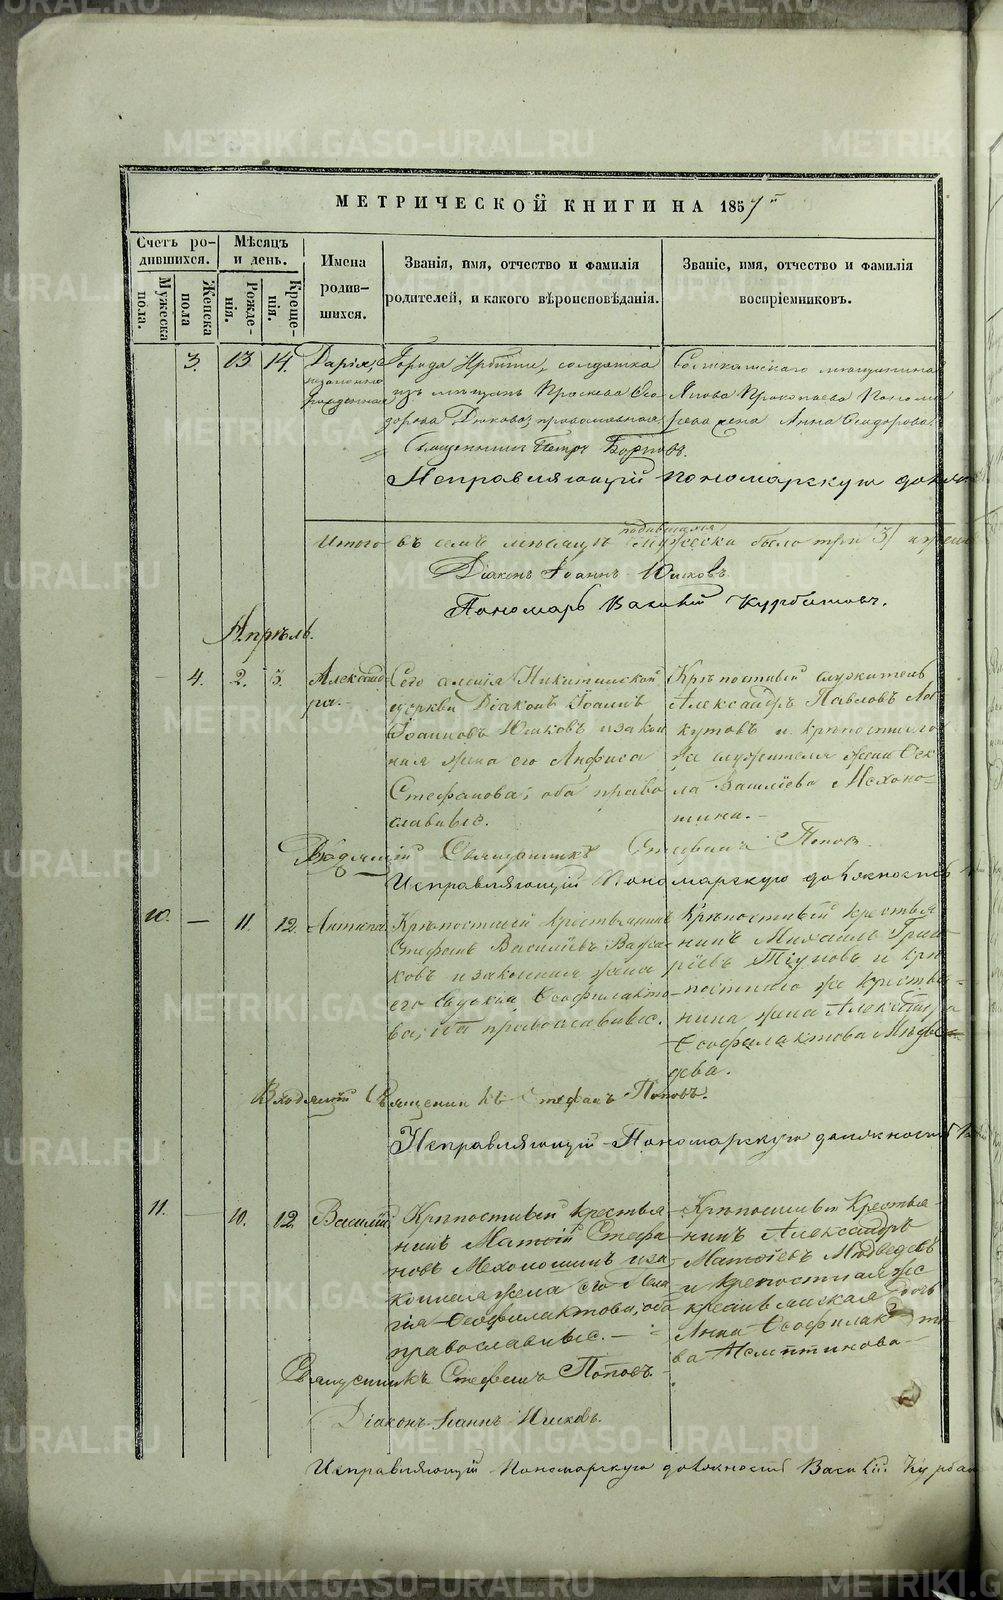 МЕТРИЧЕСКОЙ КНИГИ НА 1857
Счетъ ро-
дившихся.
Мужеска пола.
Женска пола
Мѣсяцъ и день.
Рожде-
нія.
Креще-
нія.
Имена
родив-
шихся.
Званія, имя, отчество и фамилія
родителей, и какого вѣроисповѣданія.
Званіе, имя, отчество и фамилія
воспріемниковъ.
3. 13 14. Дарія, Города Ирбити, солдатка
незаконно изъ мѣщанъ
рожденная православная жена Анна Ѳеодорова.
Священникъ Петръ
Исправляющій пономарскую
Итого въ семъ мѣсяцѣ родившихся мужеска было три 3/
Діаконъ Іоаннъ Юшковъ
Пономарь Василій Курбатовъ.
Апрѣль.
4. 2. 3. Александ-
ра. Сего селенія Никитинской
церкви Діаконъ Іоаннъ
Іоанновъ Юшковъ и закон
ная жена его Анфиса
Стефанова, оба право
славные.
Крѣпостный служитель
Александръ Павловъ
кутовъ и крѣпостнаго
же служителя жена Ѳек
ла Васильева Мехоно-
шина.
Входящій Священникъ Стефанъ Поповъ.
Исправляющій Пономарскую должность
10. — 11. 12. Антипа Крѣпостный крестьянинъ
Стефанъ Васильевъ
ковъ и законная жена
его Евдокія Ѳеофилакто-
ва, православные.
Крѣпостный крестья
нинъ Михаилъ Григо
рьевъ Тіуновъ и крѣ
постнаго же крестья-
нина жена Александра
Ѳеофилактова Медвѣ-
дева.
Входящій Священникъ Стефанъ Поповъ.
Исправляющій Пономарскую должность
11. — 10. 12 Василій Крѣпостный крестья
нинъ Матѳій Стефа
новъ Мехоношинъ и за
конная жена его
Ѳеофилактова, оба
православные. —
Крѣпостный Крестья-
нинъ Александръ
Матѳіевъ Медведевъ
и крепостная же
крестьянская дочь
Анна Ѳеофилакто
ва
Священникъ Стефанъ Поповъ
Діаконъ Іоаннъ Юшковъ.
Исправляющій Пономарскую должность Василій
METRIKI.GASO-URAL.RU